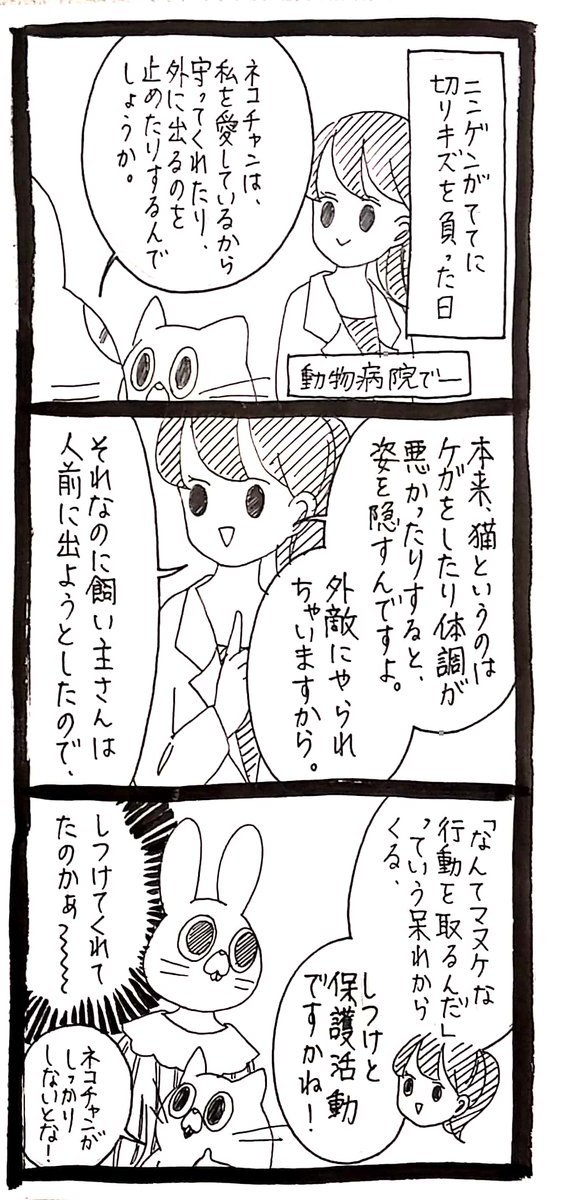 ニンゲンがてに
切りキズを負った日
ネコチャンは、
私を愛しているから
守ってくれたり、
外に出るのを
止めたりするんで
しょうか。
動物病院でー
本来、猫というのは
ケガをしたり体調が
悪かったりすると、
姿を隠すんですよ。
外敵にやられ
ちゃいますから。
それなのに飼い主さんは
人前に出ようとしたので、
「なんてマヌケな
行動を取るんだ」
っていう呆れから
くる、
しつけと
保護活動
ですかね！
しつけてくれて
たのかぁ〜〜〜〜
ネコチャンが
しっかり
しないとな！